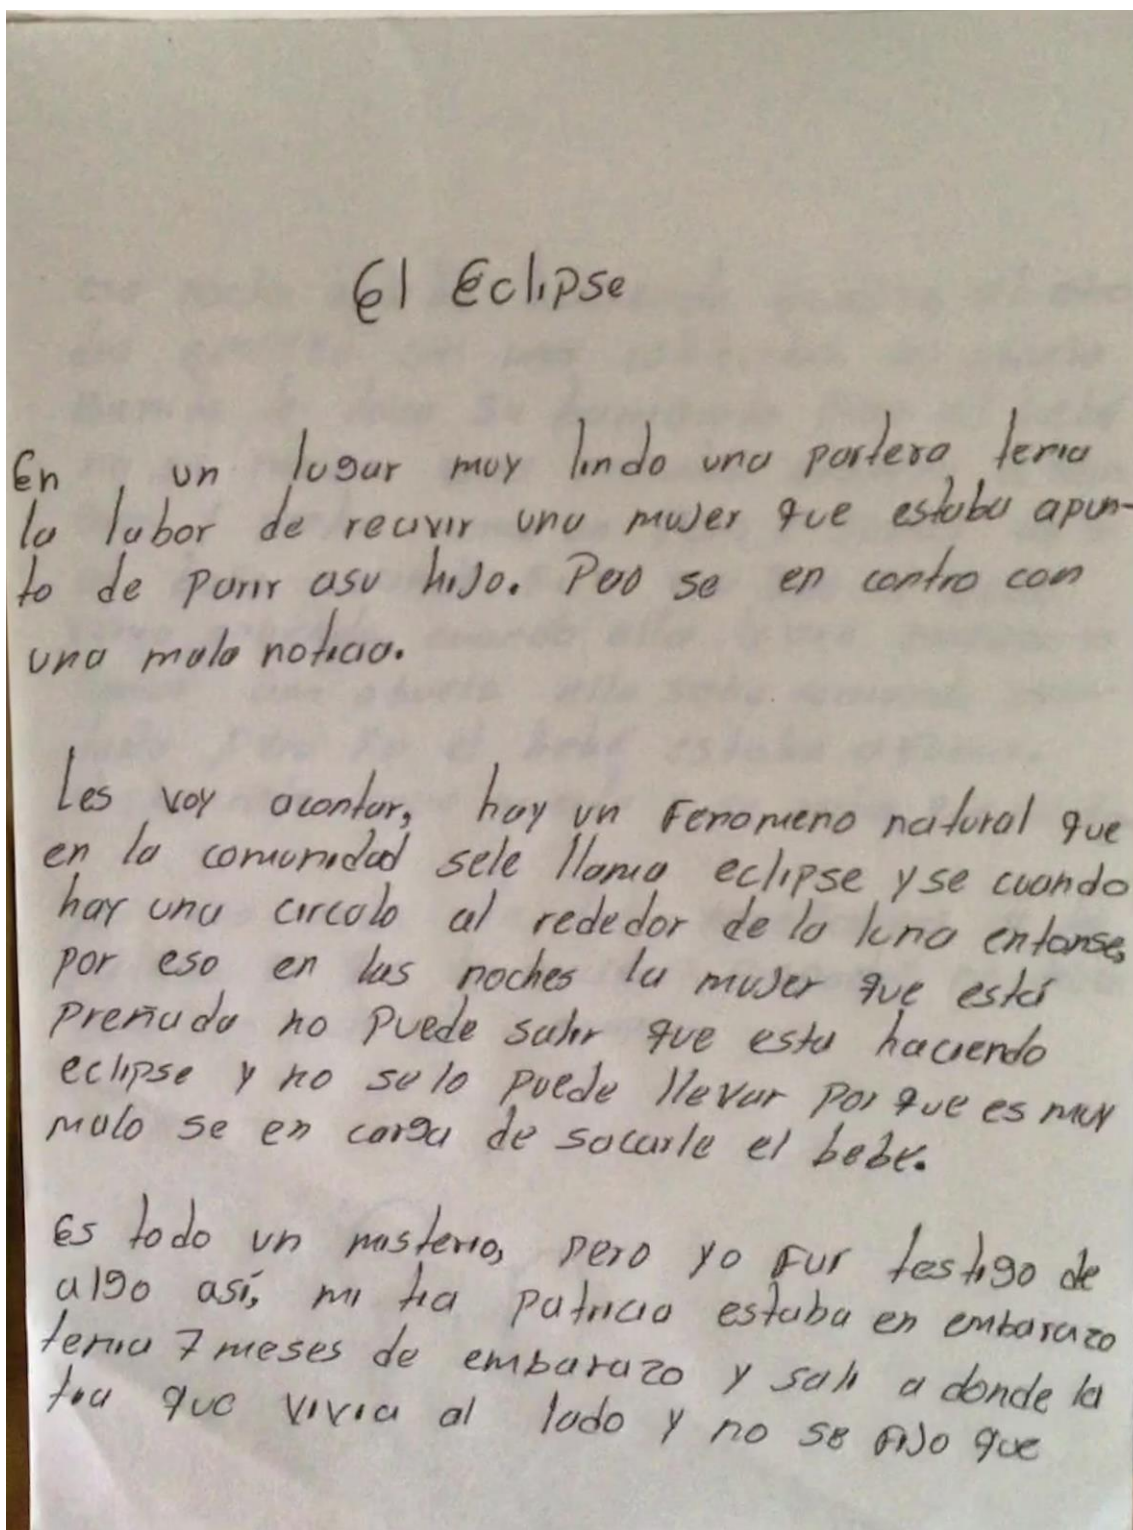 El Eclipse
En un lugar muy lindo una partera tenia
la labor de recivir una mujer que estaba apun-
to de parir asu hijo. Pero se en contro con
una mala noticia.
Les voy acontar, hay un Fenomeno natural que
en la comunidad sele llama eclipse y se cuando
hay una circulo al rededor de la luna entonse,
por eso en las noches la mujer que está
preñada no puede salir que esta haciendo
eclipse y no se lo puede llevar por que es muy
malo se en carga de sacarle el bebe.
Es todo un misterio, pero yo Fui testigo de
algo así, mi tia patricia estaba en embarazo
tenia 7 meses de embarazo y sali a donde la
tia que vivia al lado y no se fijo que